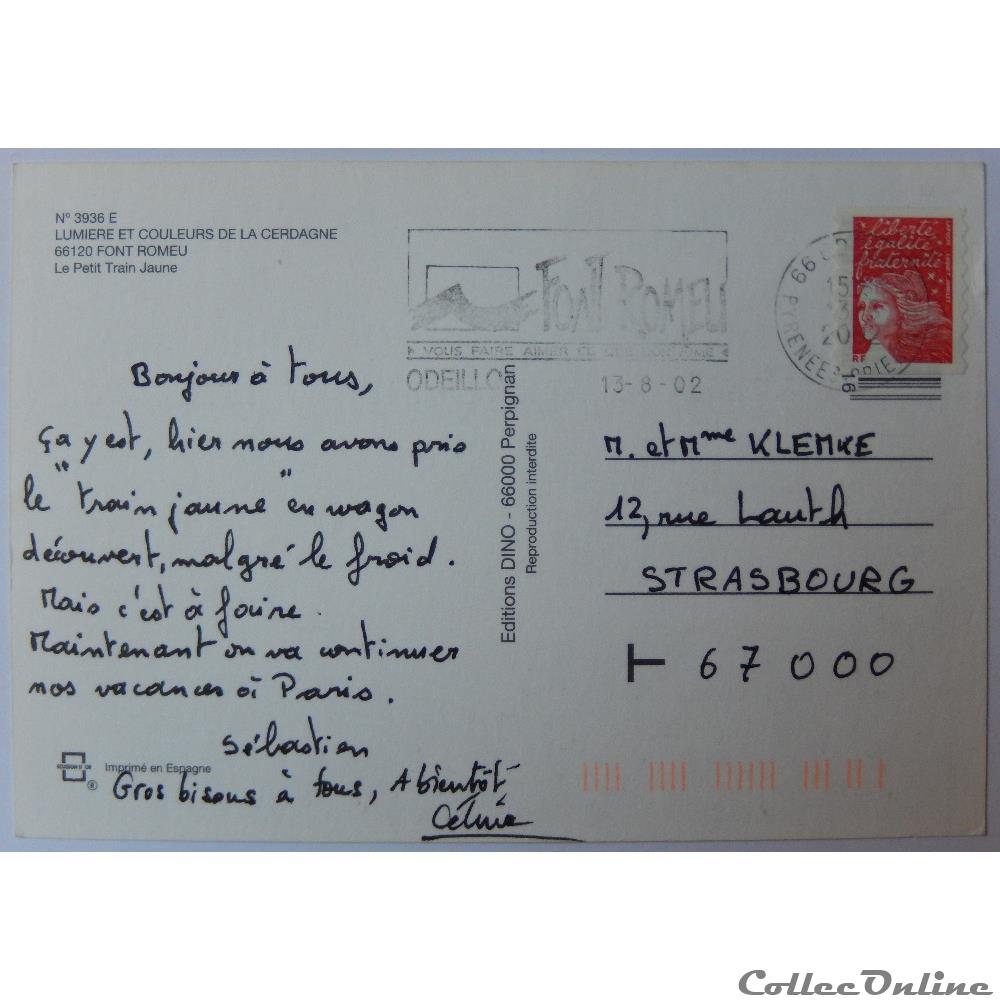 N° 3936 E
LUMIERE ET COULEURS DE LA CERDAGNE
66120 FONT ROMEU
Le Petit Train Jaune
FONT ROMEU
VOUS FAIRE AIMER CE
ODEILLO
13-8-02
liberté
égalité
fraternité
RF
66
PYRENEES ORIE
15
20
16
Bonjour à tous,
ça y est, hier nous avons pris
le "train jaune" en wagon
découvert, malgré le froid.
Mais c'est à faire.
Maintenant on va continuer
nos vacances à Paris.
Sébastien
Gros bisous à tous, A bientôt
Céline
Imprimé en Espagne
®
Editions DINO - 66000 Perpignan
Reproduction interdite
M. et Mme KLEMKE
12, rue Lauth
STRASBOURG
67000
CollecOnline